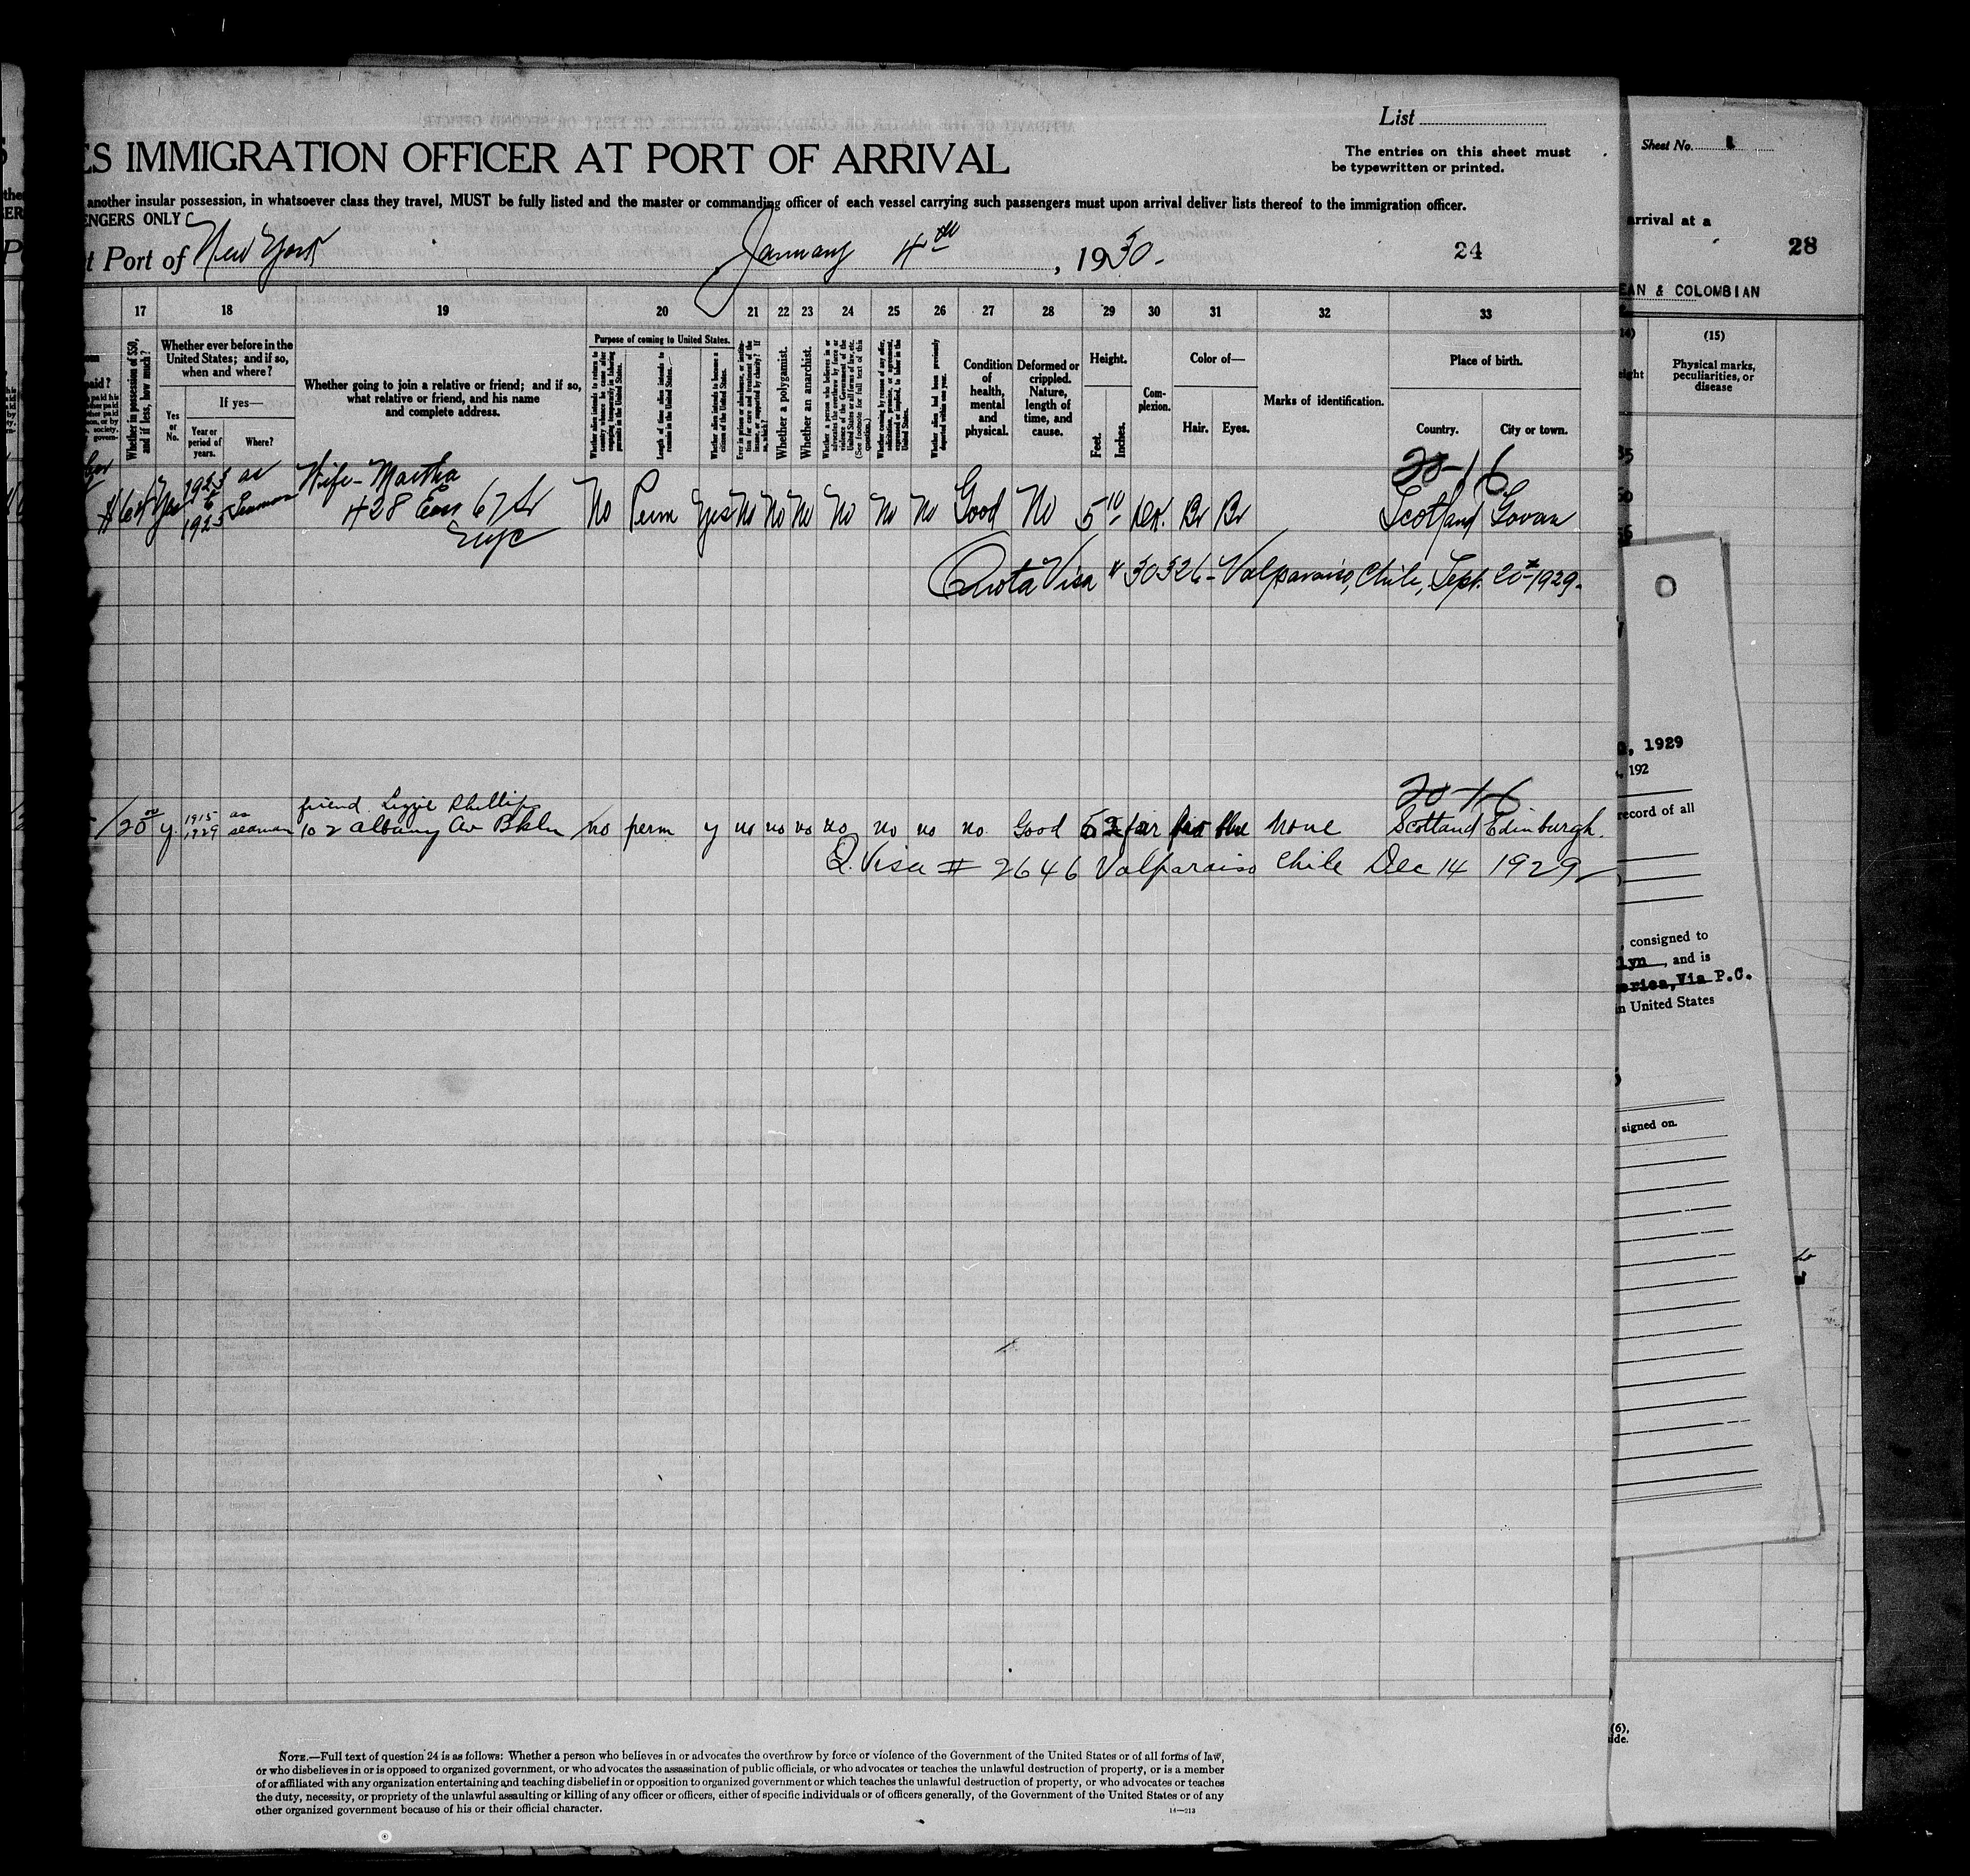 List
ES IMMIGRATION OFFICER AT PORT OF ARRIVAL
The entries on this sheet must
be typewritten or printed.
another insular possession, in whatsoever class they travel, MUST be fully listed and the master or commanding officer of each vessel carrying such passengers must upon arrival deliver lists thereof to the immigration officer.
ENGERS ONLY
t Port of New York January 4th, 1930.
24
17 18 19 20 21 22 23 24 25 26 27 28 29 30 31 32 33
Whether in possession of $50, and if less, how much?
Whether ever before in the United States; and if so, when and where?
If yes—
Yes or No.
Year or period of years.
Where?
Whether going to join a relative or friend; and if so, what relative or friend, and his name and complete address.
Purpose of coming to United States.
Length of time the alien intends to remain in the United States.
Whether alien intends to become a citizen of the United States.
Whether a polygamist.
Whether an anarchist.
Whether alien had been previously deported within one year.
Condition of health, mental and physical.
Deformed or crippled. Nature, length of time, and cause.
Height.
Feet.
Inches.
Com-plexion.
Color of—
Hair.
Eyes.
Marks of identification.
Place of birth.
Country.
City or town.
20-16
Yes 1923 to 1925 as Seaman Wife - Martha
428 East 67 St
NYC
No Perm Yes No No No No No No Good No 5 10 Dk. Br Br Scotland Govan
Quota Visa # 30326 - Valparaiso, Chile, Sept. 20th 1929.
20-16
friend Lizzie Phillips
120 y. 1915 1929 as seaman 102 Albany Av Bkln no perm y no no no no no no no. Good 5 fair blue none Scotland Edinburgh.
Q. Visa # 2646 Valparaiso Chile Dec 14 1929
NOTE.—Full text of question 24 is as follows: Whether a person who believes in or advocates the overthrow by force or violence of the Government of the United States or of all forms of law,
or who disbelieves in or is opposed to organized government, or who advocates the assassination of public officials, or who advocates or teaches the unlawful destruction of property, or is a member
of or affiliated with any organization entertaining and teaching disbelief in or opposition to organized government or which teaches the unlawful destruction of property, or who advocates or teaches
the duty, necessity, or propriety of the unlawful assaulting or killing of any officer or officers, either of specific individuals or of officers generally, of the Government of the United States or of any
other organized government because of his or their official character.
14—213
Sheet No.
arrival at a
28
EAN & COLOMBIAN
(15)
Physical marks, peculiarities, or disease
, 1929
, 192
record of all
, consigned to
lyn, and is
erica, Via P.C.
n United States
signed on.
(6),